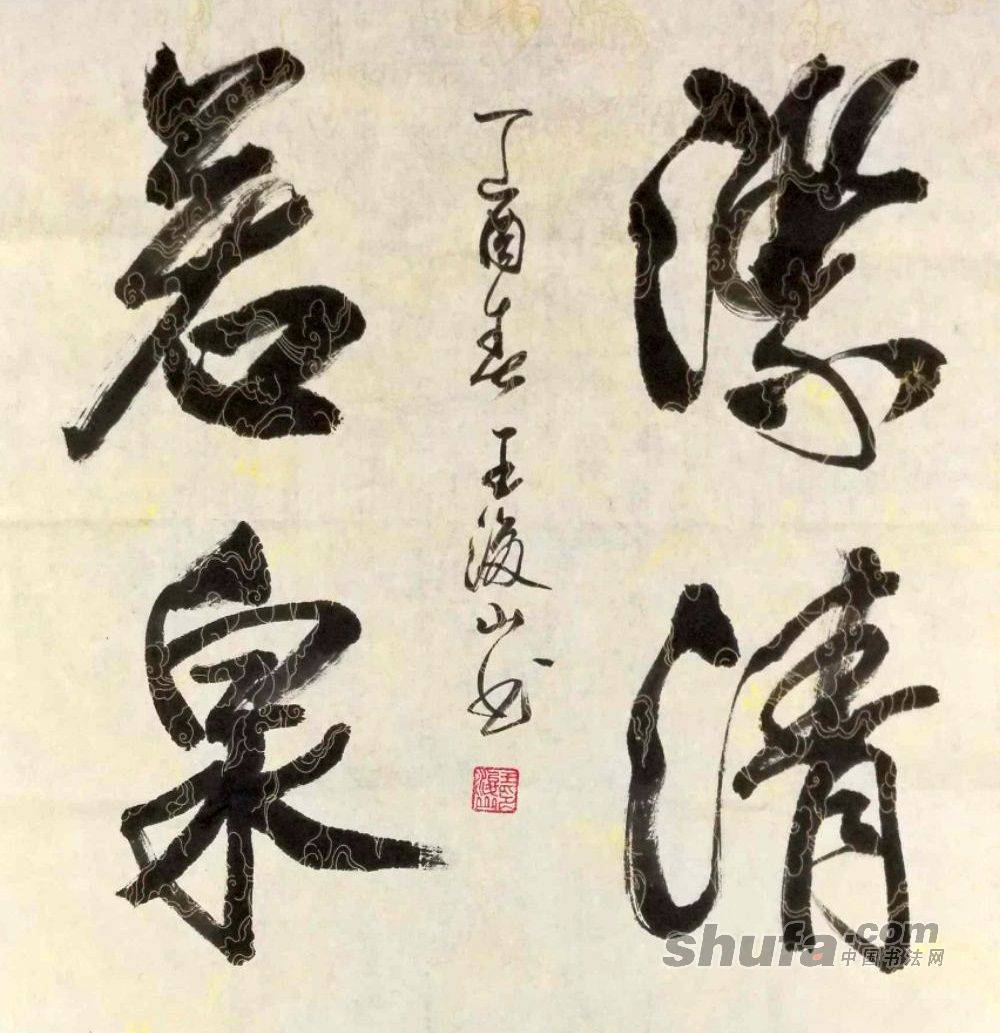 潔清
若泉
丁酉春 王海山书
shufa.com
中国书法网